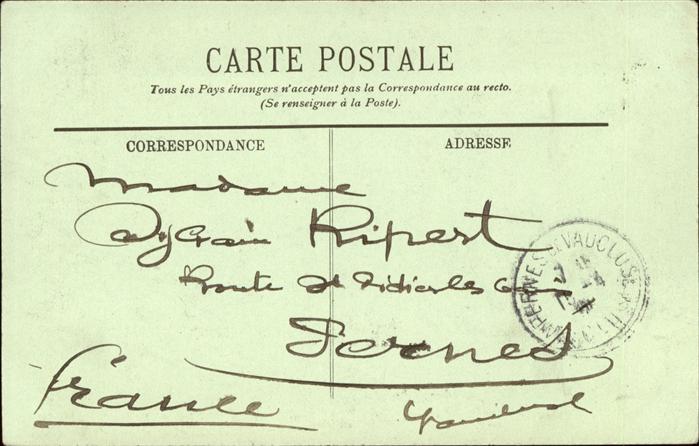 CARTE POSTALE
Tous les Pays étrangers n'acceptent pas la Correspondance au recto.
(Se renseigner à la Poste).
CORRESPONDANCE
ADRESSE
Madame
Sylvain Ripert
Route St Didier les
Pernes
France
Vaucluse
PERNES VAUCLUSE